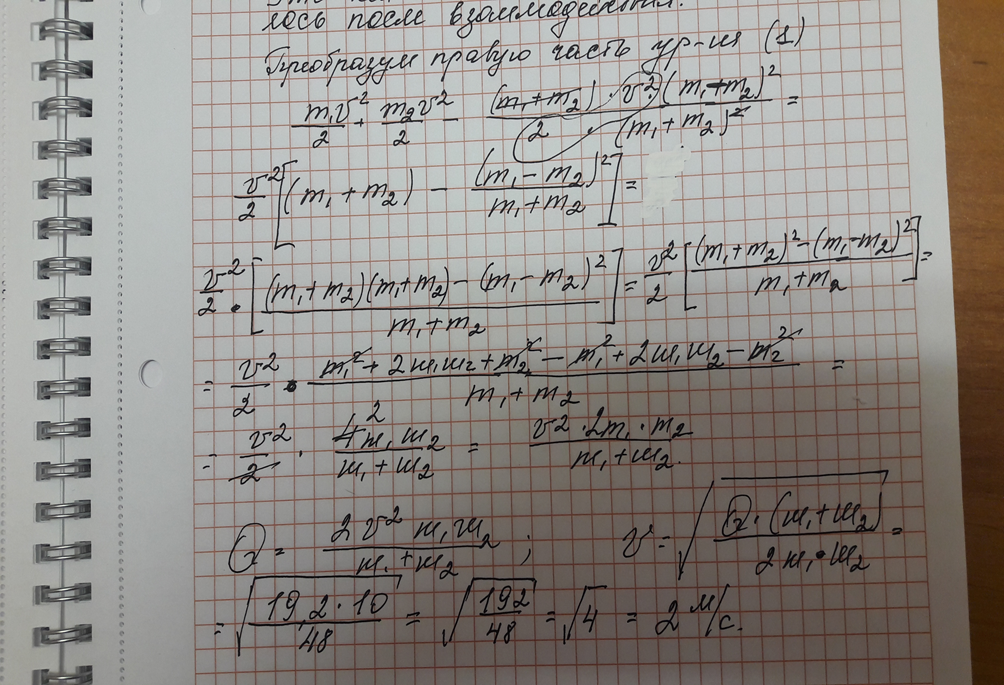 лось после взаимодействия.
Преобразуем правую часть ур-ия (1)
m₁v²/2 + m₂v²/2 − (m₁+m₂)·v²·(m₁+m₂)²/2·(m₁+m₂)² =
v²/2 [(m₁+m₂) − (m₁−m₂)²/m₁+m₂] =
v²/2 · [(m₁+m₂)(m₁+m₂) − (m₁−m₂)²/m₁+m₂] = v²/2 [(m₁+m₂)² − (m₁−m₂)²/m₁+m₂] =
= v²/2 · m₁² + 2m₁m₂ + m₂² − m₁² + 2m₁m₂ − m₂²/m₁+m₂ =
= v²/2 · 4² m₁m₂/m₁+m₂ = v²·2m₁·m₂/m₁+m₂.
Q = 2v²m₁m₂/m₁+m₂ ; v = √(Q·(m₁+m₂)/2m₁·m₂) =
= √(19,2·10/48) = √(192/48) = √4 = 2 м/с.